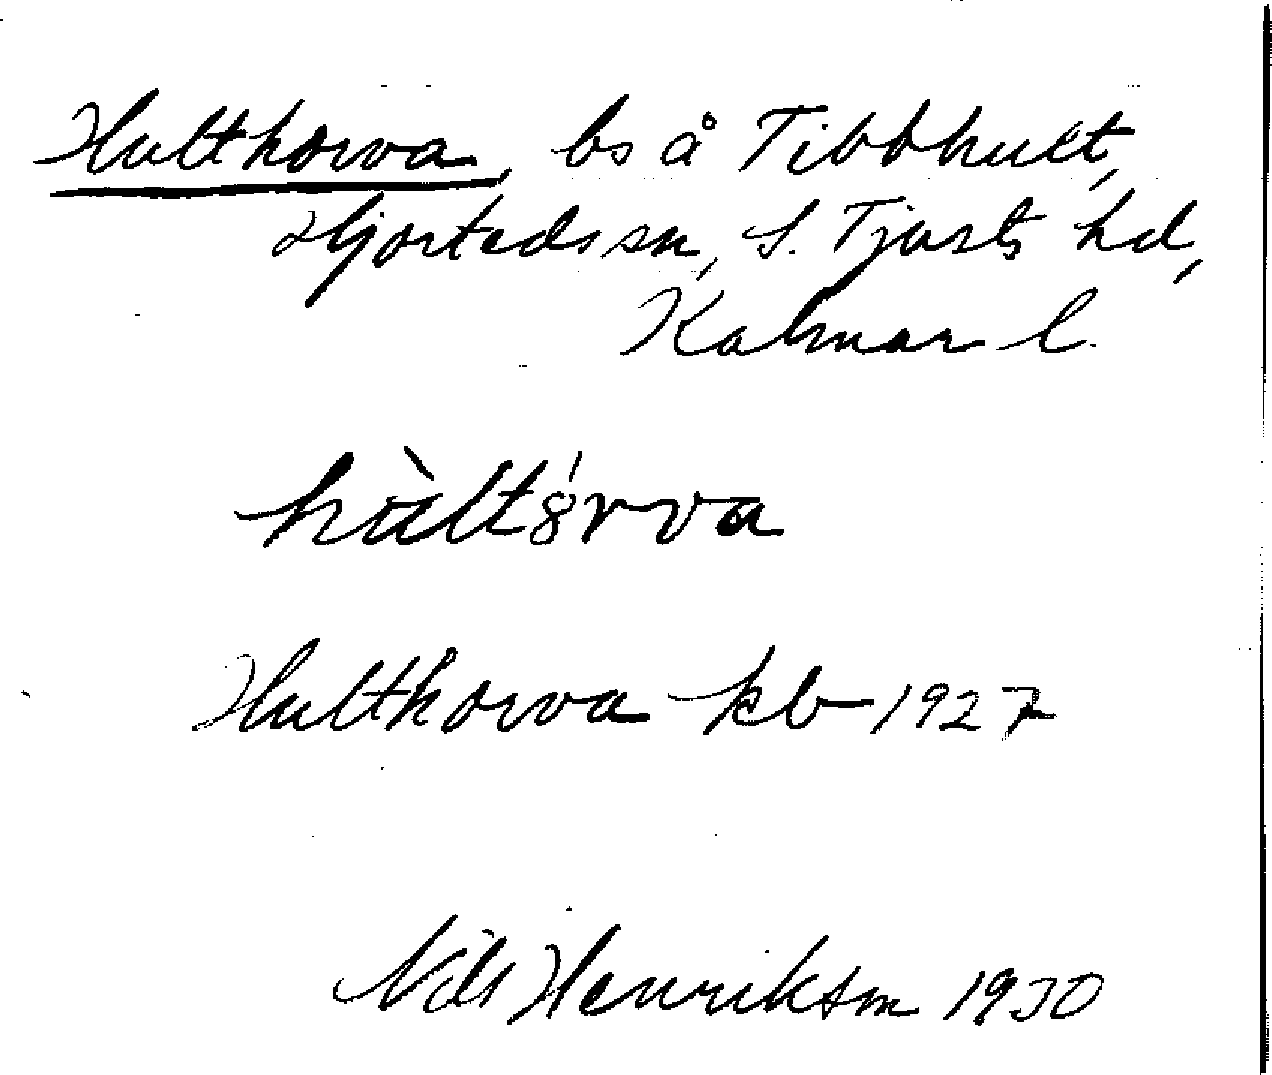 Hulthorva, bs å Tibbhult,
Hjorteds sn, S. Tjusts hd,
Kalmar l.
hùlt8́rva
Hulthorva kb 1927
Nils Henrikson 1930